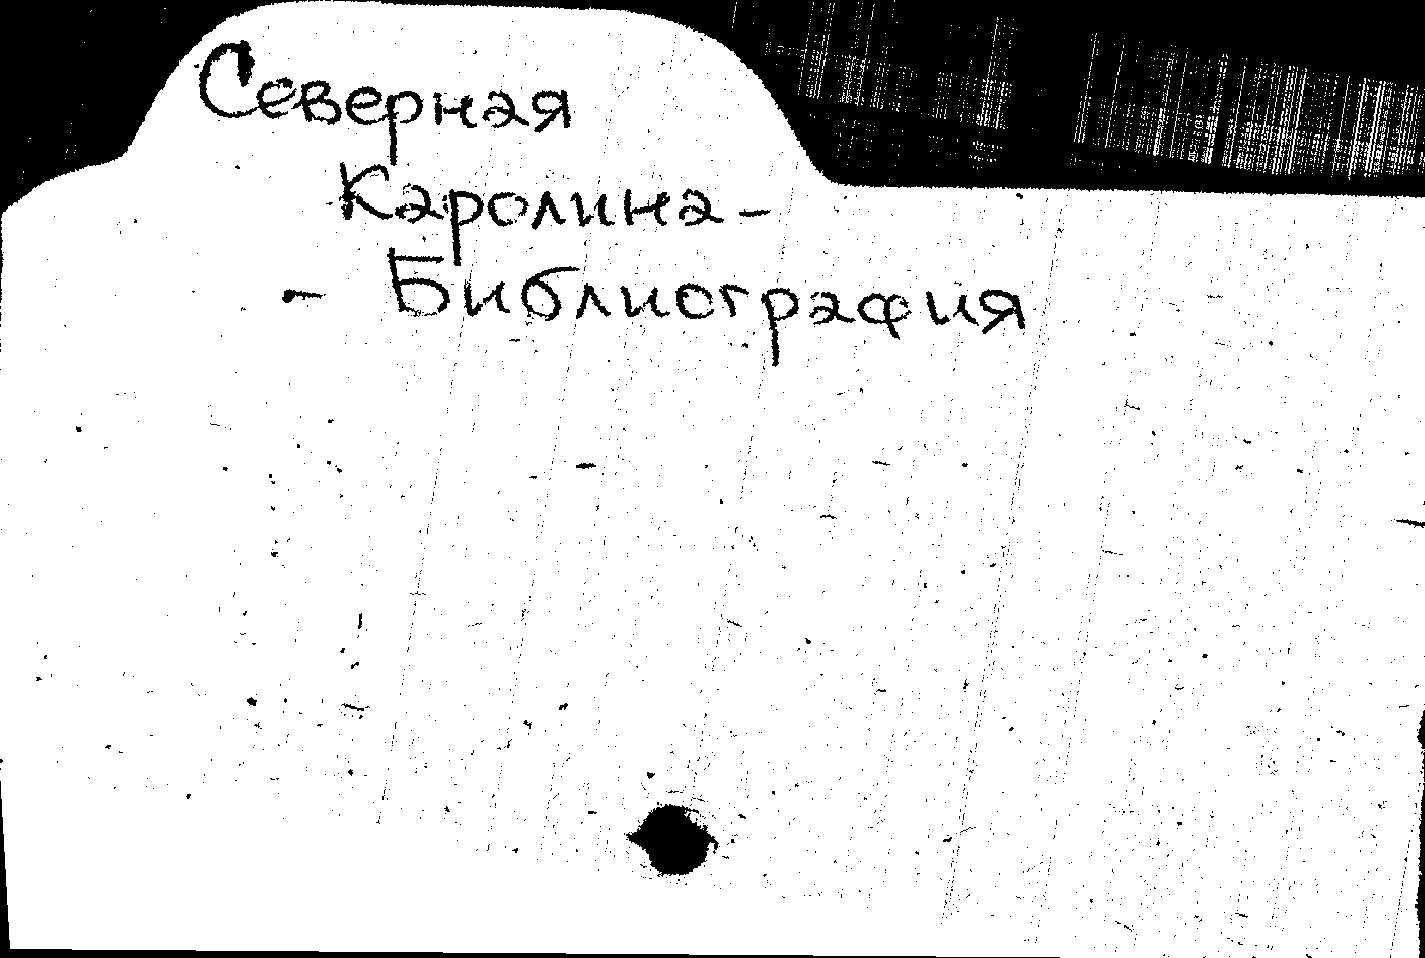 Северная
Каролина -
- Библиография